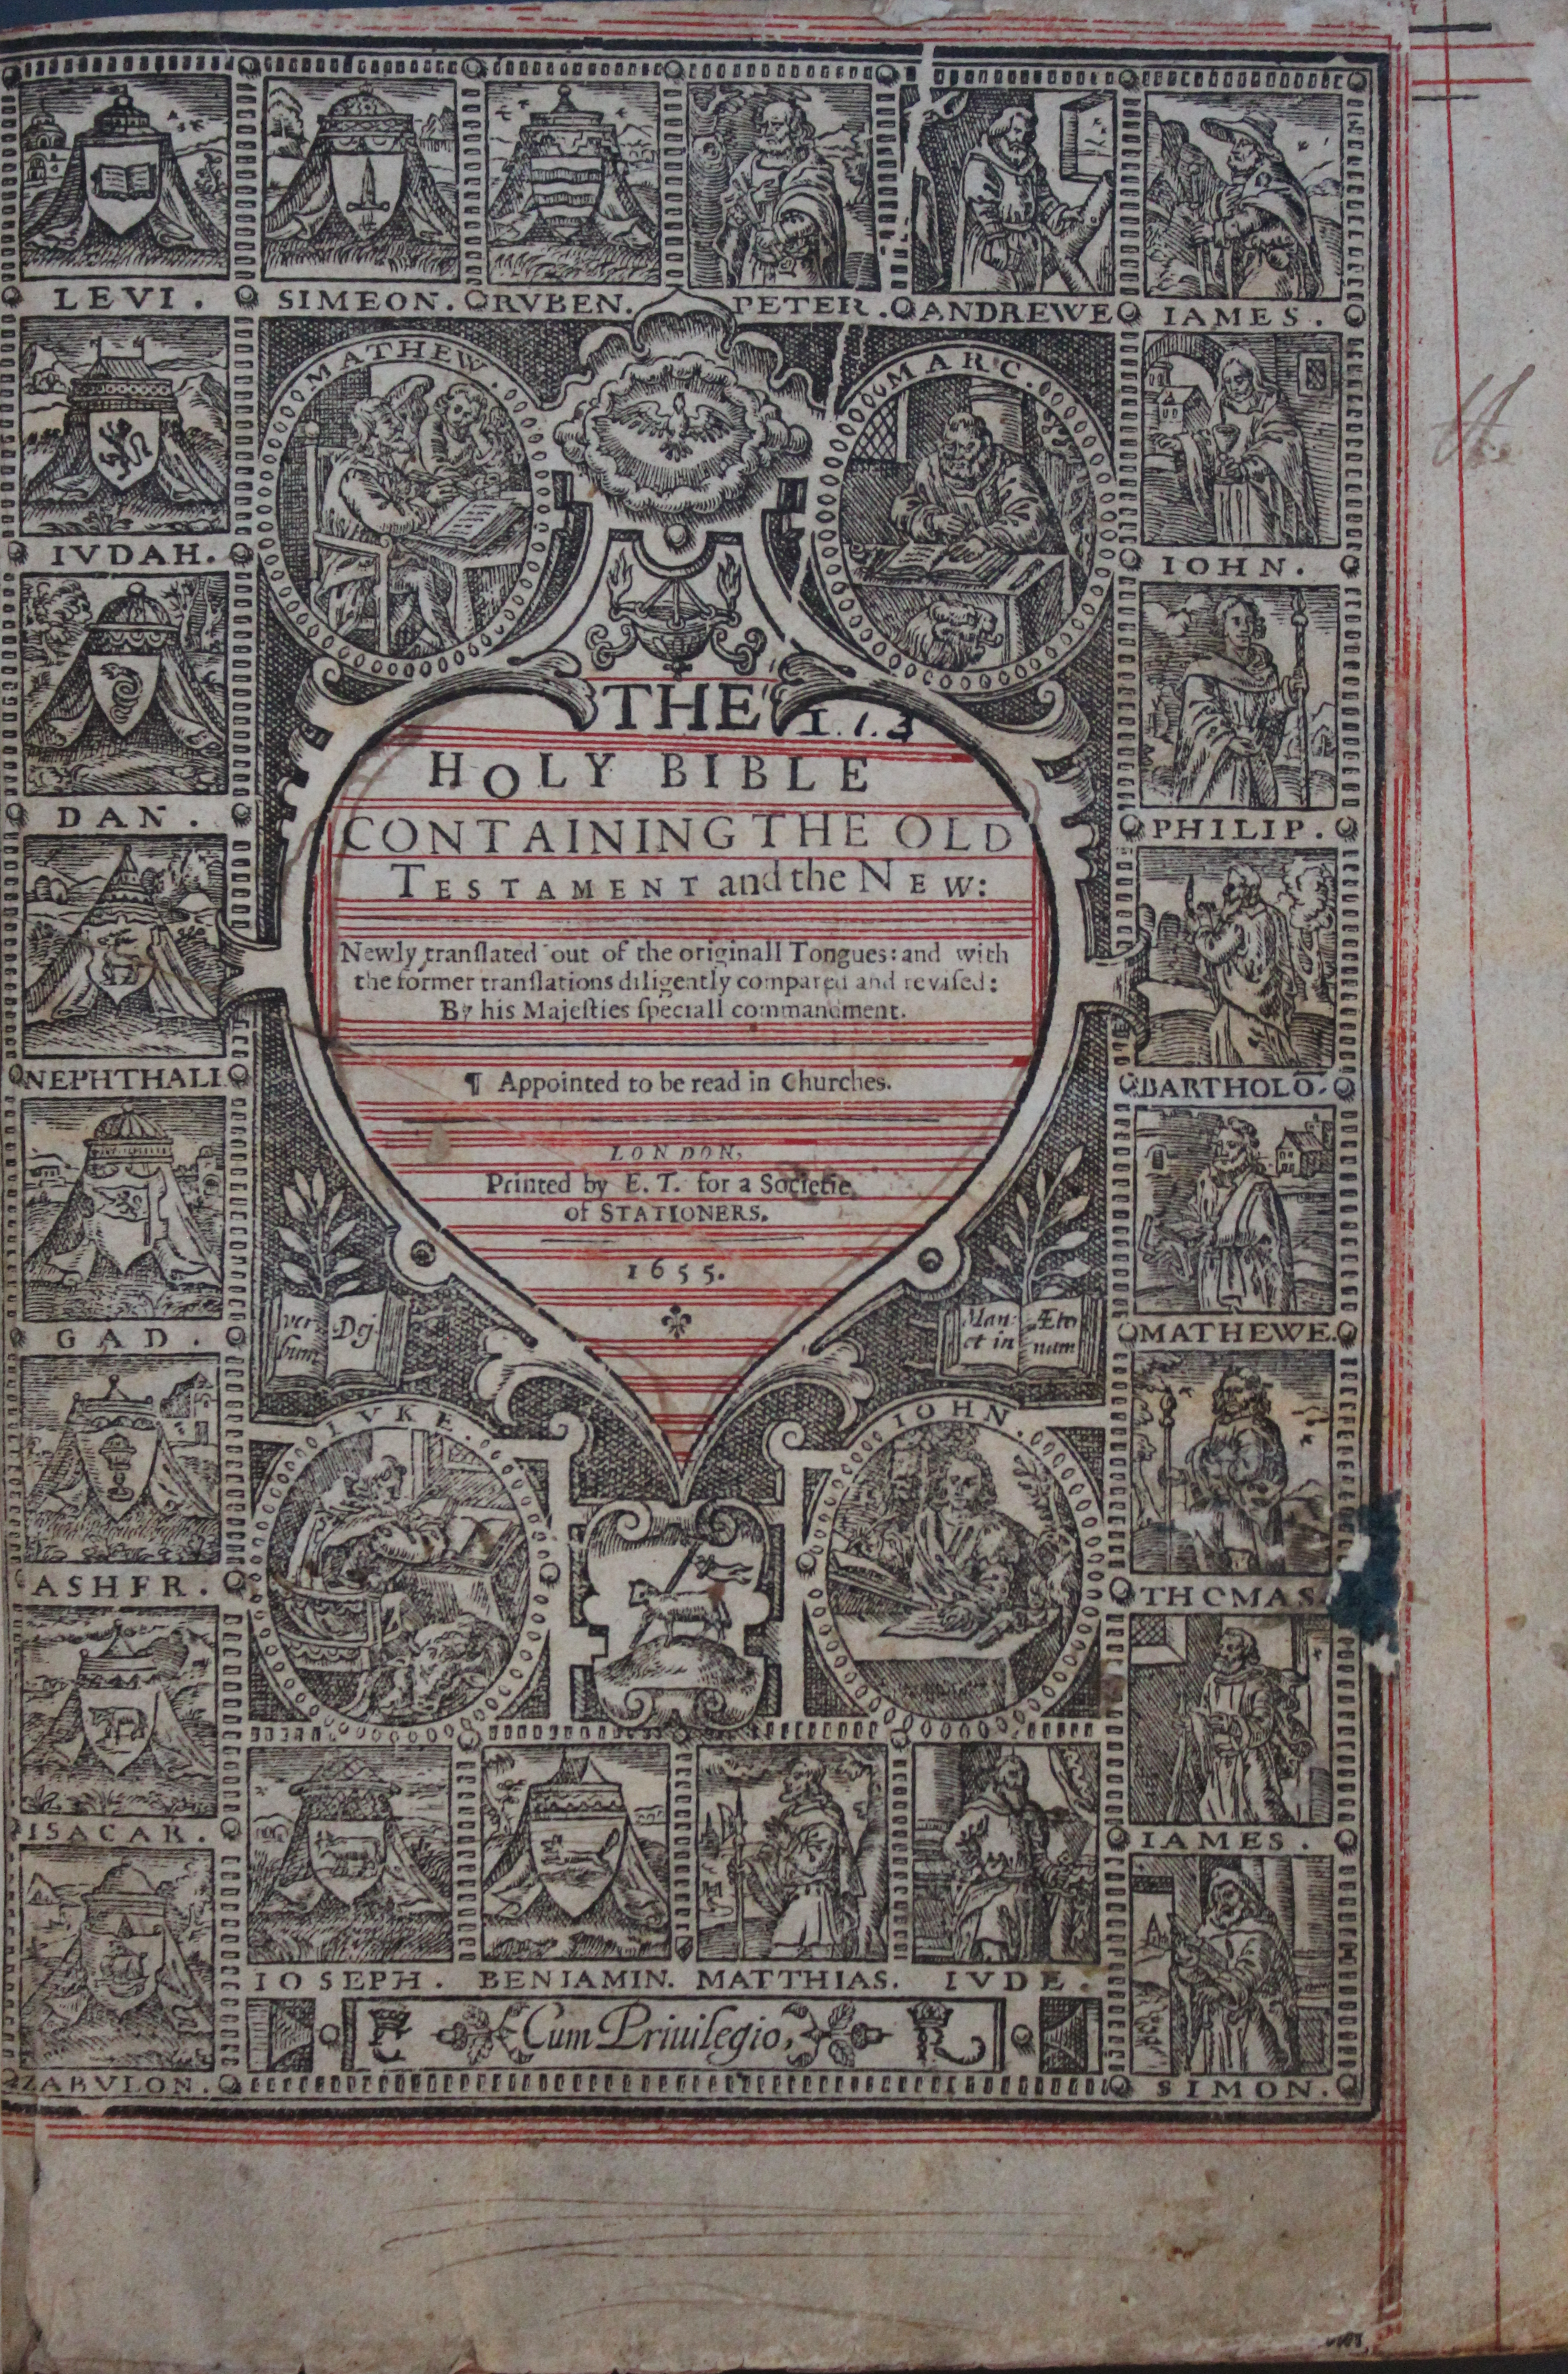 LEVI.
SIMEON.
RVBEN.
PETER.
ANDREWE
IAMES.
MATHEW.
MARC.
IVDAH.
IOHN.
DAN.
PHILIP.
NEPHTHALI.
BARTHOLO.
GAD.
MATHEWE.
ASHER.
THOMAS.
ISACAR.
IAMES.
ZABVLON.
SIMON.
THE
1.1.3
HOLY BIBLE
CONTAINING THE OLD
TESTAMENT and the NEW:
Newly tranſlated out of the originall Tongues: and with
the former tranſlations diligently compared and reviſed:
By his Majeſties ſpeciall commandment.
¶ Appointed to be read in Churches.
LONDON,
Printed by E. T. for a Societie
of STATIONERS.
1655.
ver Dej
bum
Man: Æter
et in num
LVKE.
IOHN.
IOSEPH.
BENIAMIN.
MATTHIAS.
IVDE.
E Cum Priuilegio, R